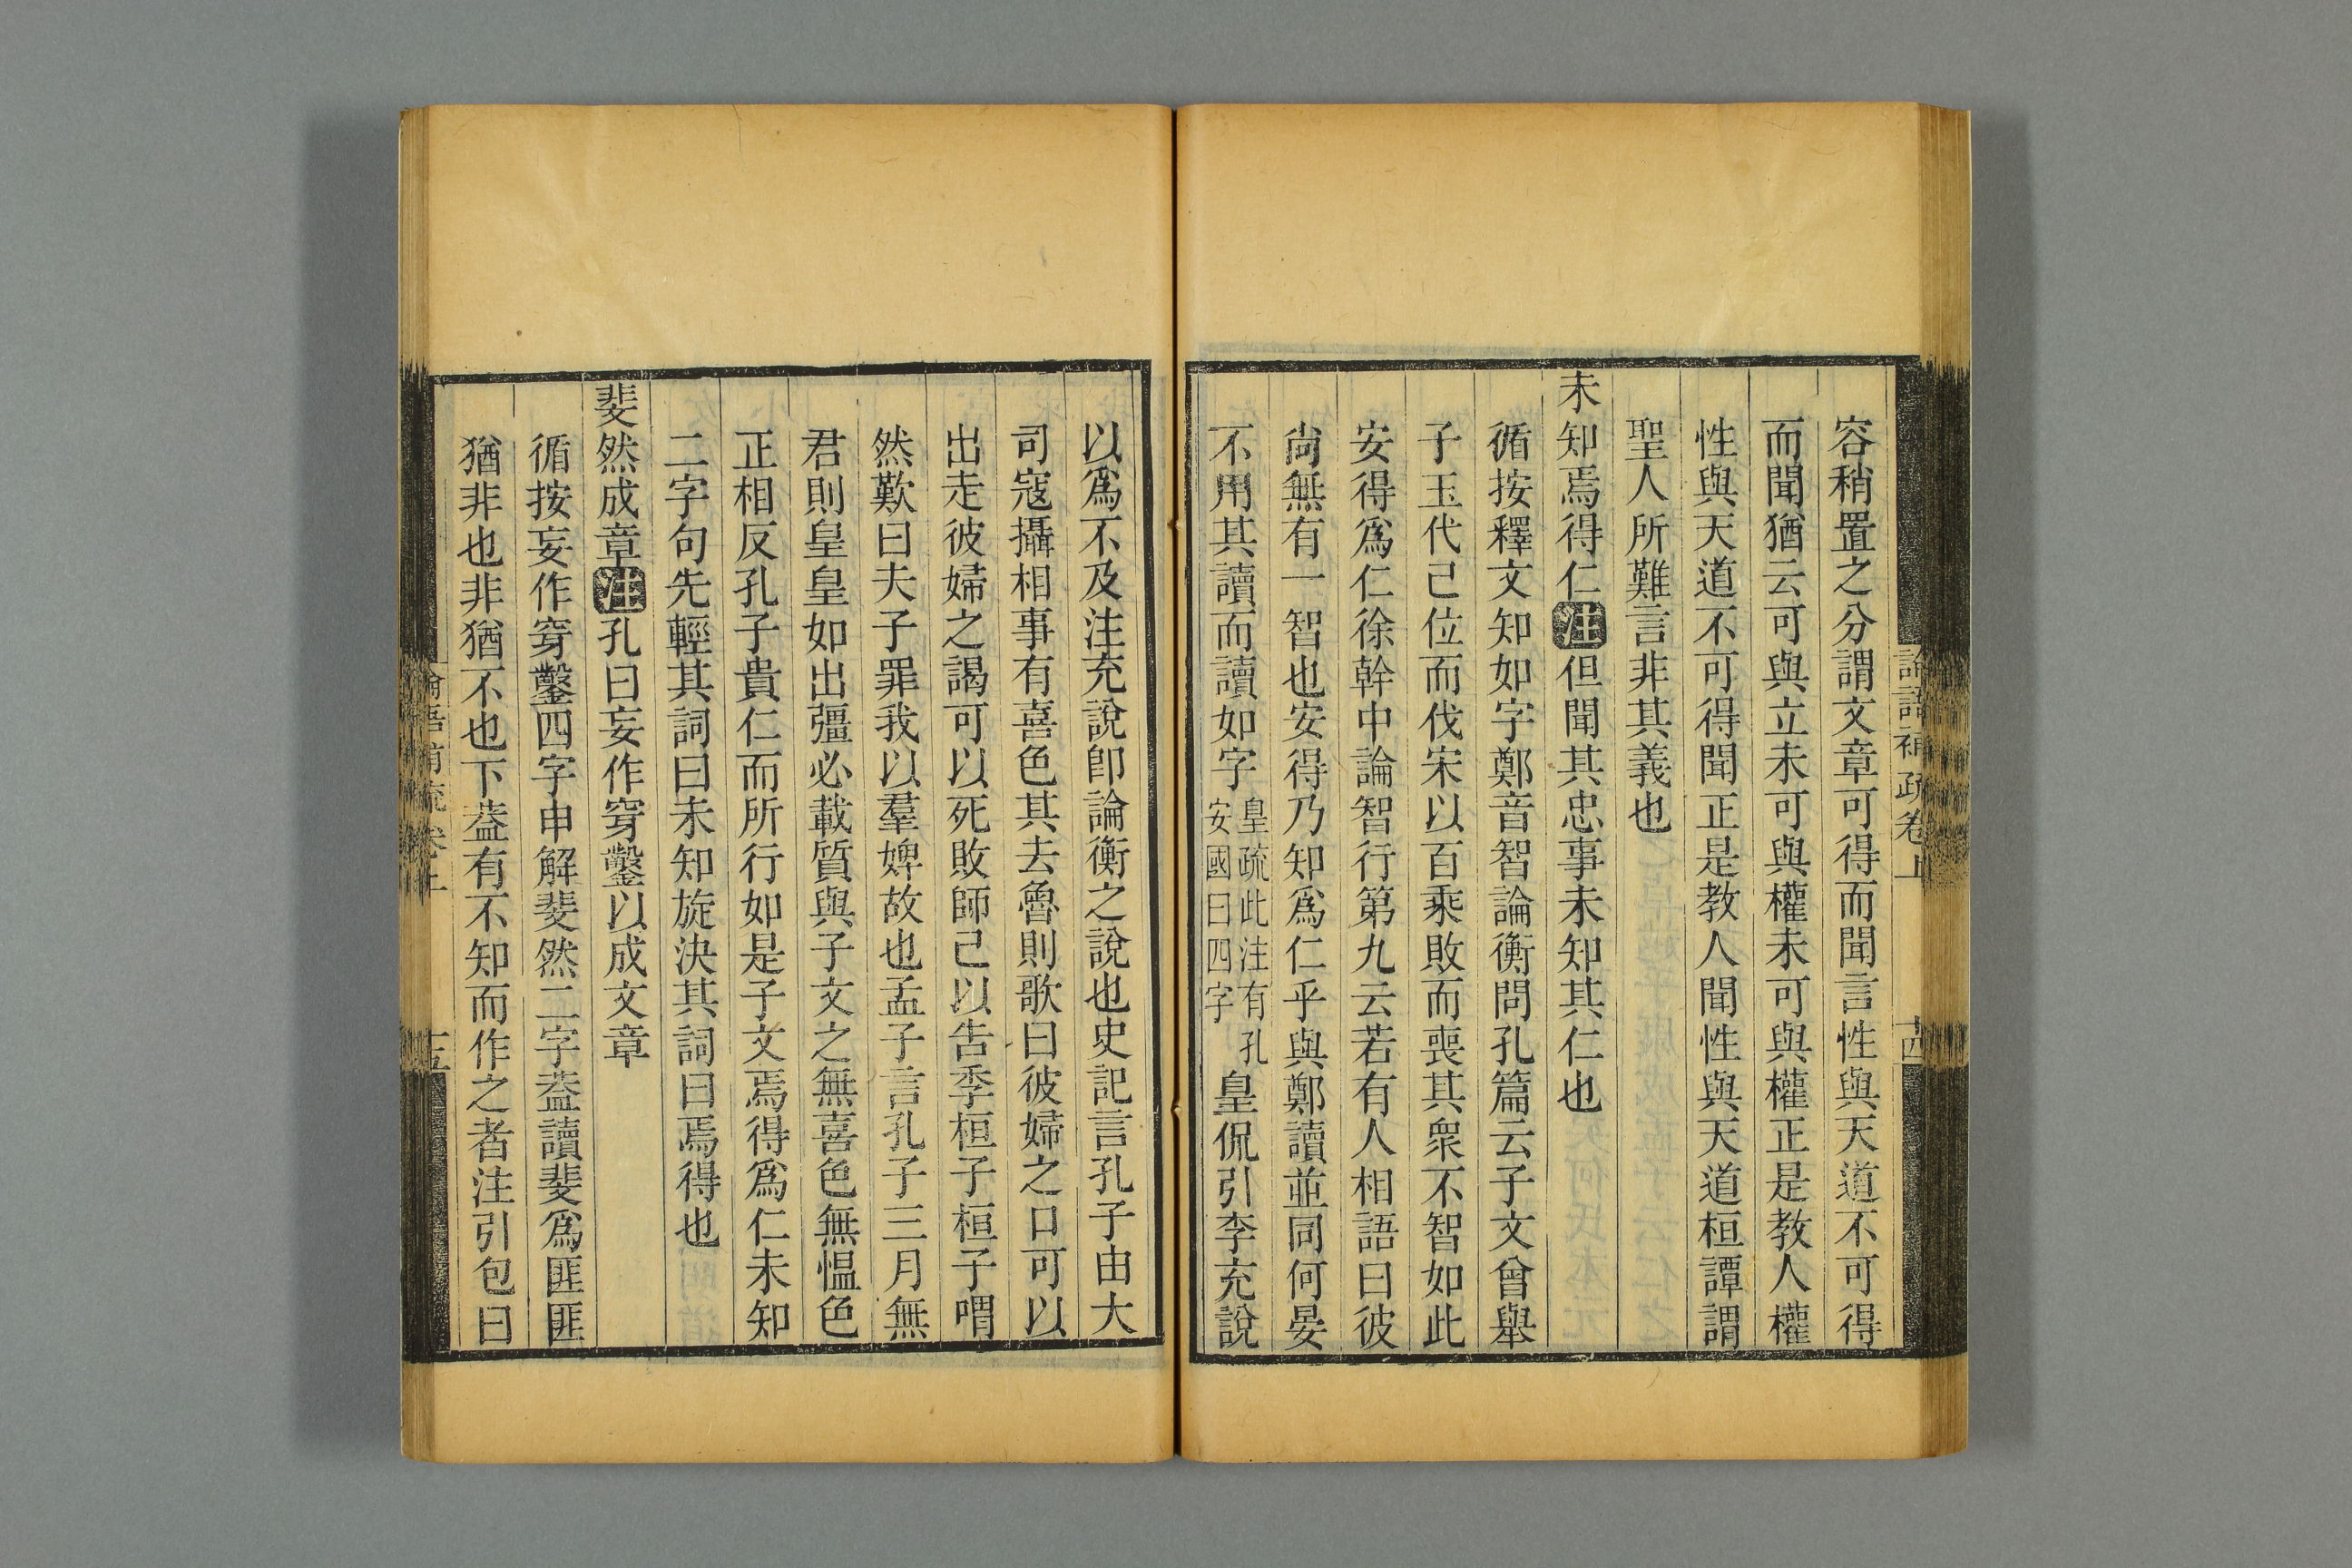 論語補疏卷上
十四
容稍置之分謂文章可得而聞言性與天道不可得
而聞猶云可與立未可與權未可與權正是教人權
性與天道不可得聞正是教人聞性與天道桓譚謂
聖人所難言非其義也
未知焉得仁注但聞其忠事未知其仁也
循按釋文知如字鄭音智論衡問孔篇云子文曾舉
子玉代己位而伐宋以百乘敗而喪其衆不智如此
安得爲仁徐幹中論智行第九云若有人相語曰彼
尚無有一智也安得乃知爲仁乎與鄭讀並同何晏
不用其讀而讀如字皇疏此注有孔安國曰四字皇侃引李充說
以爲不及注充說卽論衡之說也史記言孔子由大
司寇攝相事有喜色其去魯則歌曰彼婦之口可以
出走彼婦之謁可以死敗師己以告季桓子桓子喟
然歎曰夫子罪我以羣婢故也孟子言孔子三月無
君則皇皇如出彊必載質與子文之無喜色無愠色
正相反孔子貴仁而所行如是子文焉得爲仁未知
二字句先輕其詞曰未知旋決其詞曰焉得也
斐然成章注孔曰妄作穿鑿以成文章
循按妄作穿鑿四字申解斐然二字葢讀斐爲匪匪
猶非也非猶不也下葢有不知而作之者注引包曰
論語補疏卷上
十五